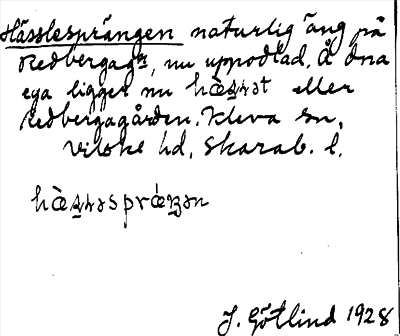 Hässlesprängen naturlig äng på
Redbergag:n, nu uppodlad, Å dna
ega ligger nu hæ̀ʂʂɭət eller
Redbergagården. Kleva sn,
Vilske hd, Skarab. l.
J. Götlind 1928